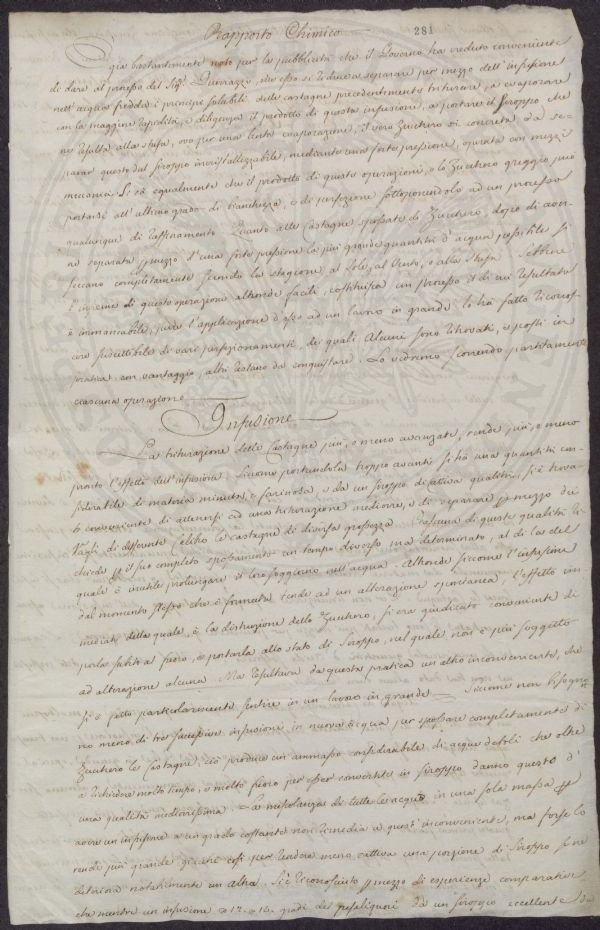 Rapporto Chimico
281
Già bastantemente noto per la pubblicità che il Governo ha veduto conveniente
di dare al processo del Sigr. Guerrazzi, che esso si riduce a separare per mezzo dell'infusione
nell'acqua fredda i principj solubili delle castagne precedentemente triturate, a evaporare
con la maggiore rapidità, e diligenza il prodotto di questa infusione, a portare il siroppo che
ne resulta alla stufa, ove per una lenta evaporazione, il vero Zucchero si concreta, da se-
parar questo dal siroppo incristallizzabile, mediante una forte pressione, operata con mezzi
meccanici. Si sà egualmente che il prodotto di queste operazioni, o lo Zucchero greggio può
portarsi all'ultimo grado di bianchezza, e di perfezione sottoponendolo ad un processo
qualunque di raffinamento. Quanto alle Castagne spossate di Zucchero, dopo di aver-
ne separata mezzo d'una forte pressione la più grande quantità d'acqua possibile si
seccano completamente secondo la stagione, al Sole, al Vento, o alla Stufa. Sebbene
l'insieme di queste operazioni altronde facili, costituisca un processo il di cui resultato
è immancabile, pure l'applicazione d'esso ad un lavoro in grande lo hà fatto riconos-
cere suscettibile di varj perfezionamenti, de quali alcuni sono ritrovati, e posti in
pratica con vantaggio, altri restano da conquistare. Lo vedremo scorrendo partitamente
ciascuna operazione
Infusione
La triturazione delle Castagne più, o meno avanzata, rende più, o meno
pronto l'effetto dell'infusione. Siccome portandola troppo avanti si hà una quantità con-
siderabile di materia minuta, e farinosa, e da un siroppo di cattiva qualità, si è trova-
to conveniente di attenersi ad una triturazione mediocre, e di separare mezzo dei
Vagli di differente calibro le castagne di diversa grossezza. Ciascuna di queste qualità ri-
chiede il suo completo spossamento un tempo diverso ma determinato, al di là del
quale è inutile prolungare il loro soggiorno nell'acqua. Altronde siccome l'infusione
dal momento stesso che è formata tende ad un alterazione spontanea, l'effetto im-
mediato della quale, è la distruzione dello Zucchero, si era giudicato conveniente di
porla subito al fuoco, e portarla allo stato di Siroppo, nel quale non è più soggetto
ad alterazione alcuna. Ma resultava da questa pratica un altro inconveniente, che
si è fatto particolarmente sentire in un lavoro in grande. Siccome non bisogna
no meno di tre successive infusioni in nuova acqua per spossare completamente di
Zucchero le Castagne, ciò produce un ammasso considerabile di acque deboli che oltre
a richiedere molto tempo, e molto fuoco per esser convertite in siroppo danno questo d'
una qualità mediocrissima. La mescolanza di tutte le acque in una sola massa
avere un infusione a un grado costante non rimedia a quest'inconveniente, ma forse lo
rende più grande giacchè così per rendere meno cattiva una porzione di Siroppo se ne
deteriora notabilmente un altra. Si è riconosciuto mezzo di esperienze comparative
che mentre un infusione a 12. o 14. gradi del pesaliquori da un siroppo eccellente